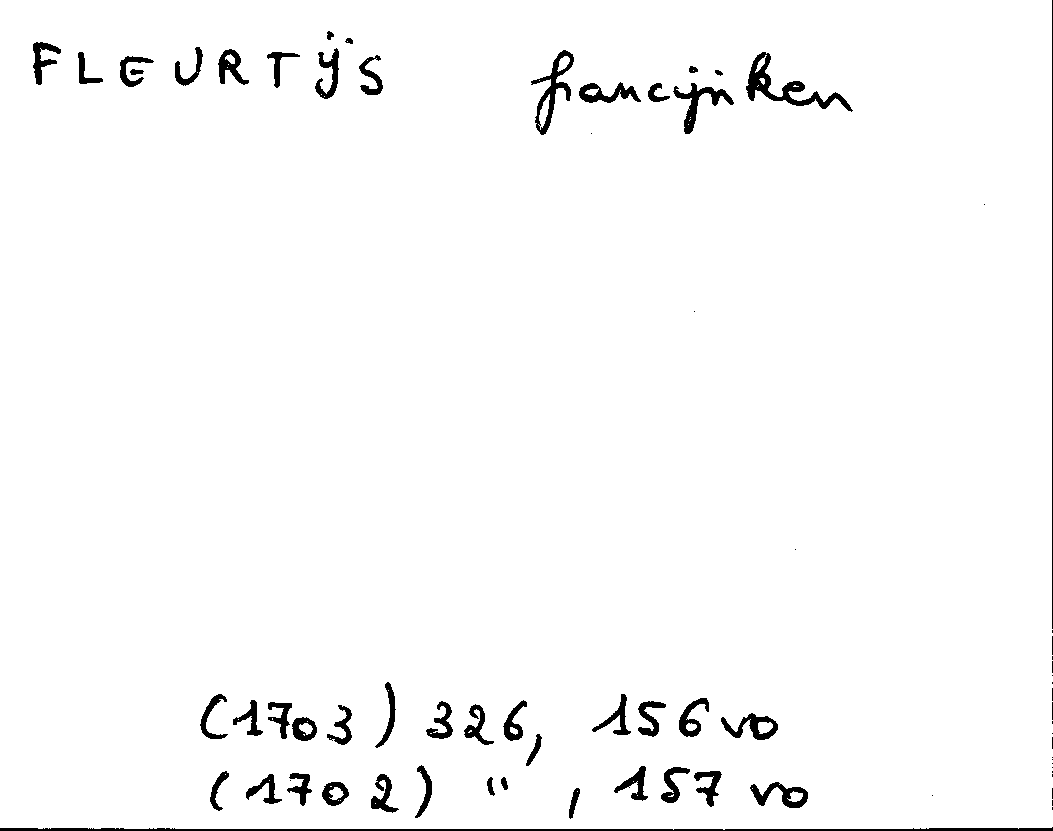 FLEURTÿS francijnken
(1703) 326, 156 vo
(1702) " , 157 vo